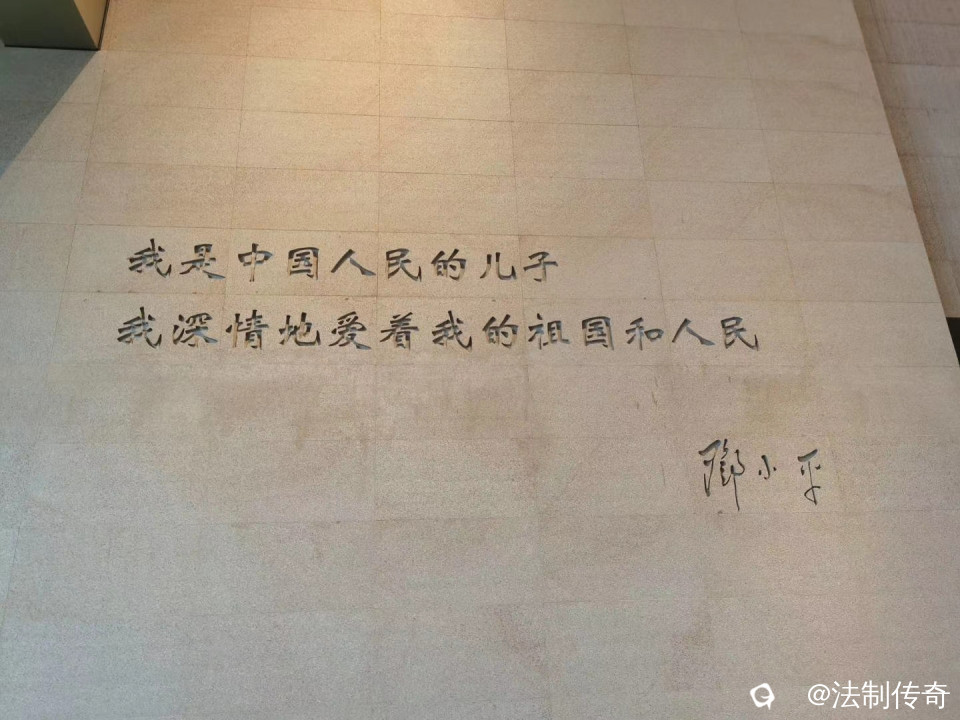 我是中国人民的儿子
我深情地爱着我的祖国和人民
邓小平
@法制传奇